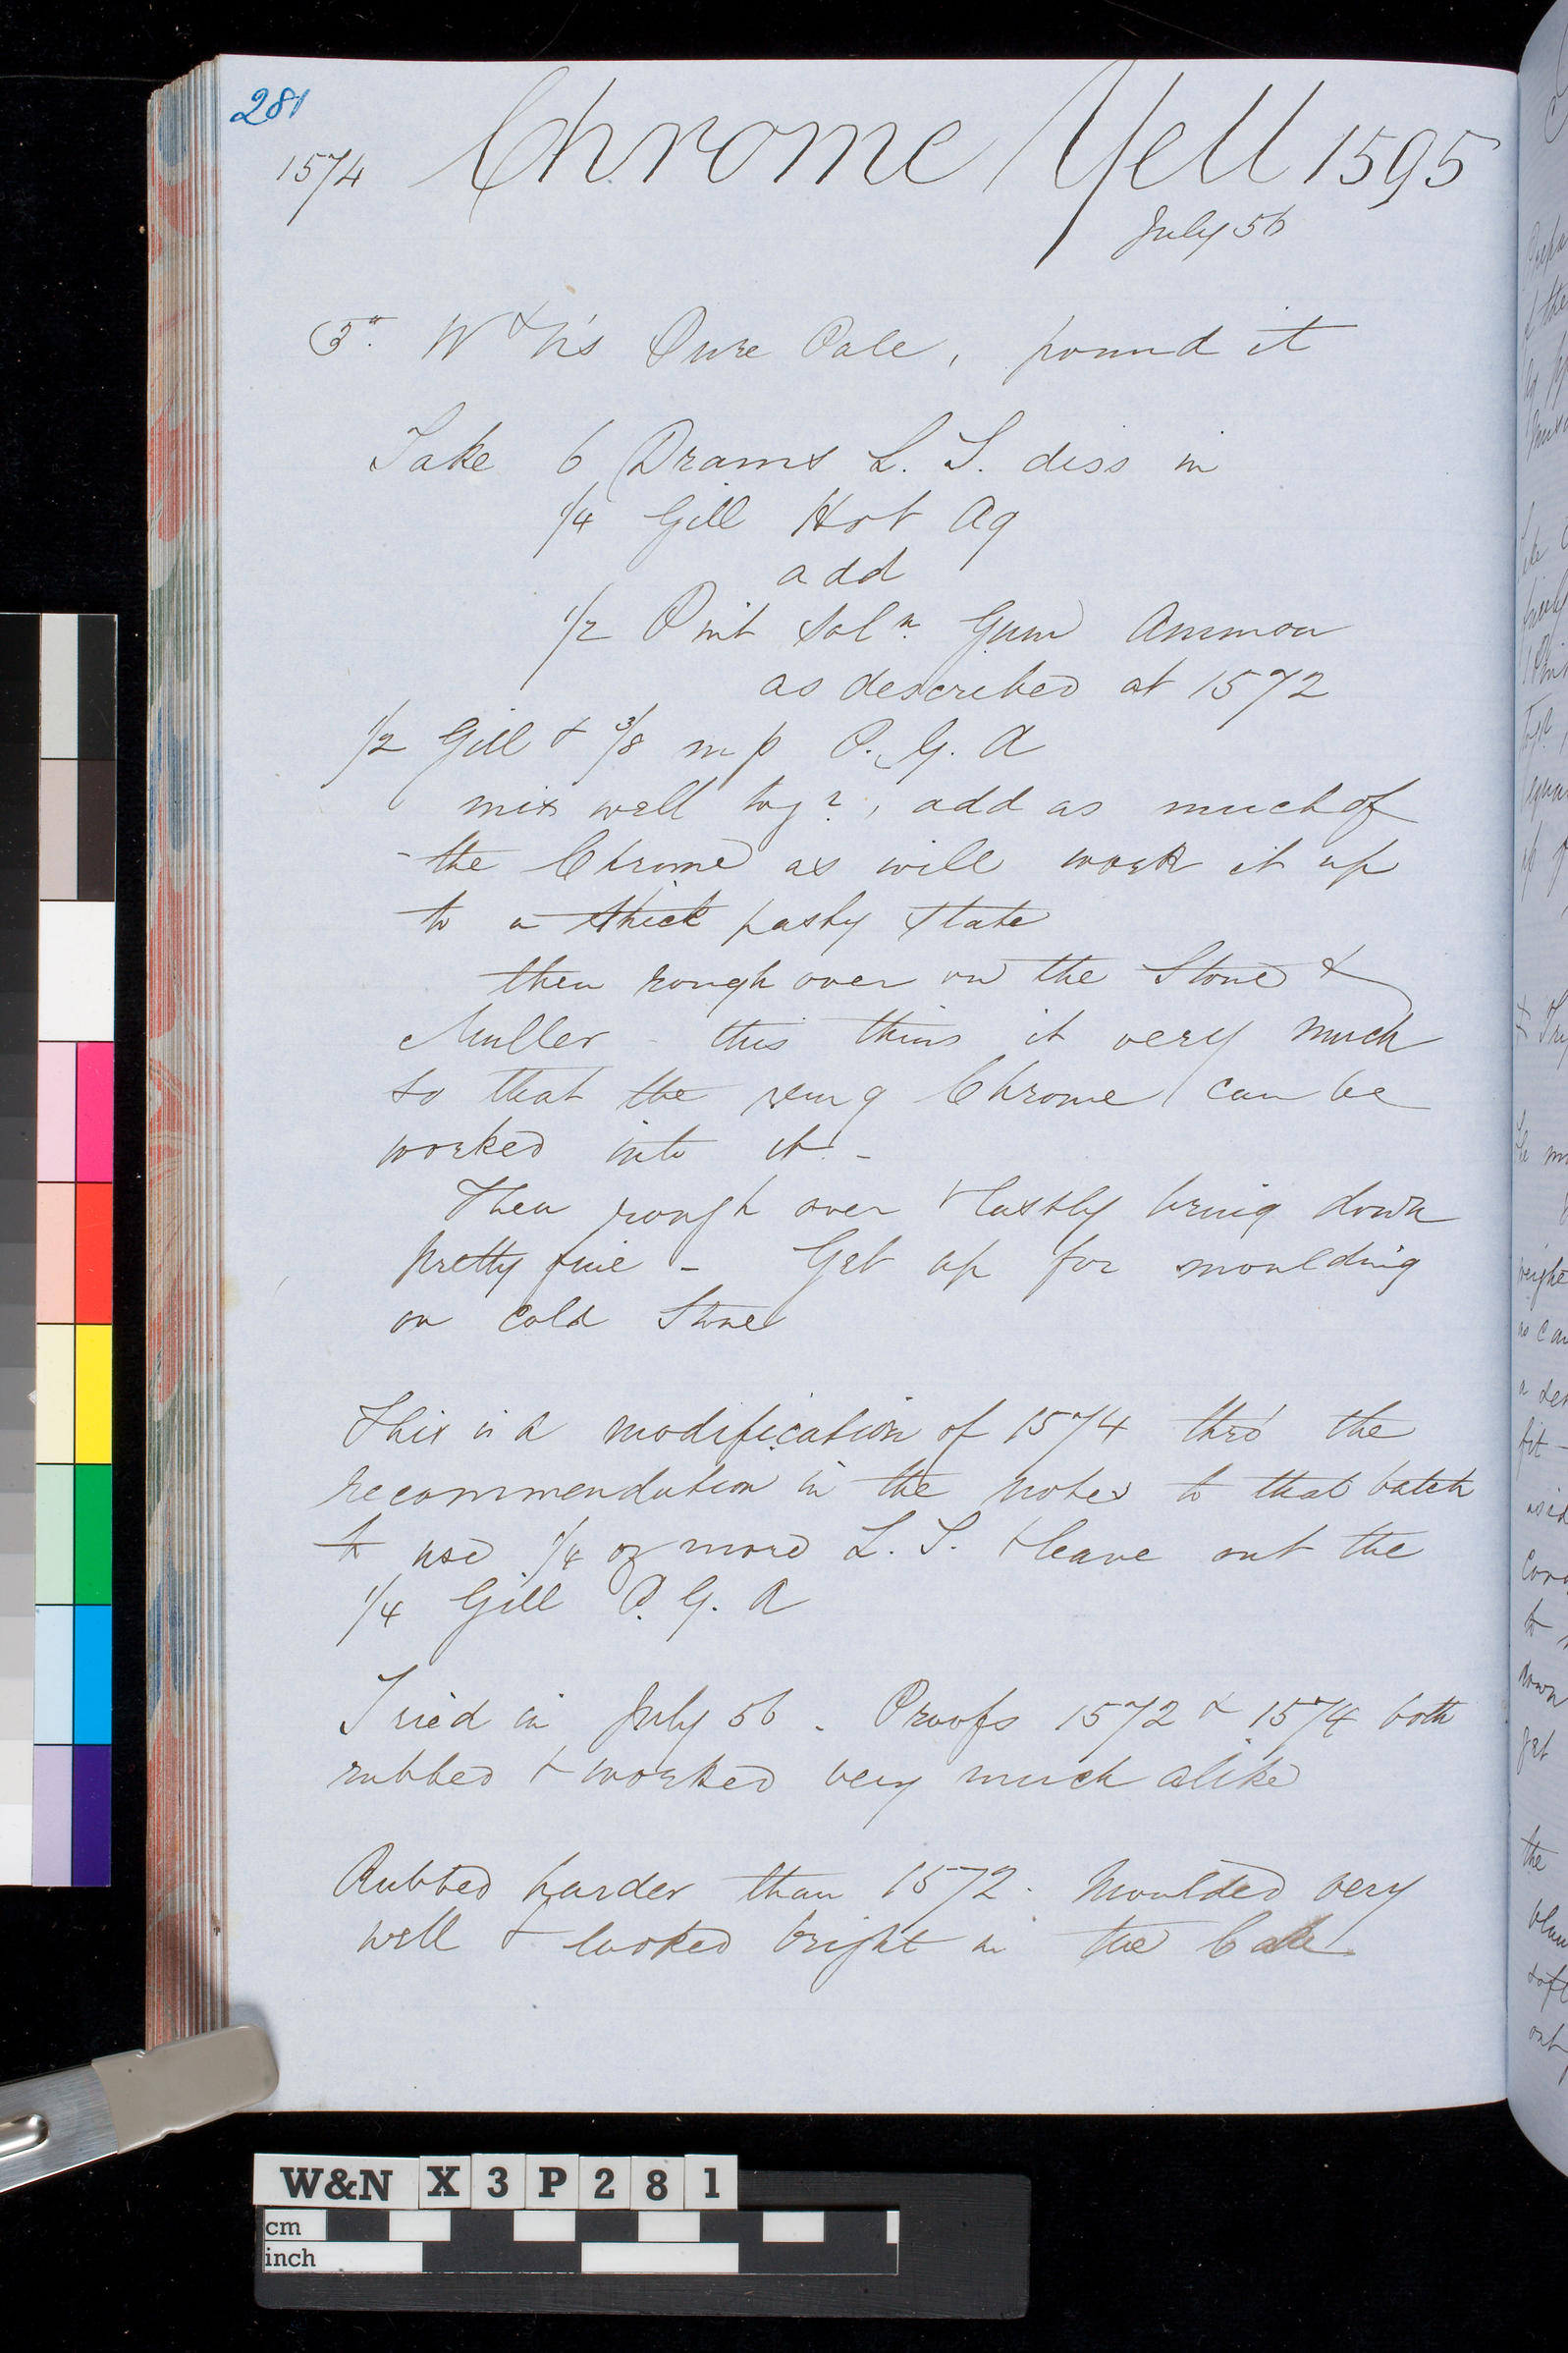 281
1574 Chrome Yell 1595
July 56
W & N's Pure Pale, pound it
Take 6 Drams L. S. diss in
1/4 Gill Hot Aq
add
1/2 Pint Soln. Gum Ammon
as described at 1572
1/2 Gill & 3/8 m p P. G. A
mix well togr, add as much of
the Chrome as will work it up
to a thick pasty state
then rough over on the Stone &
Muller - this thins it very much
so that the remg Chrome can be
worked into it -
Then rough over & lastly bring down
pretty fine - Get up for moulding
on cold Stone
This is a modification of 1574 thro' the
recommendation in the notes to that batch
to use 1/4 oz more L. S. & leave out the
1/4 Gill P. G. A
Tried in July 56. Proofs 1572 & 1574 both
rubbed & worked very much alike
Rubbed harder than 1572. Moulded very
well & looked bright in the Cake
W&N X 3 P 2 8 1
cm
inch